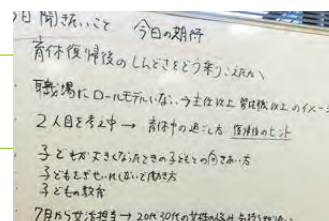 日 聞きたいこと 今日の期待
育休復帰後のしんどさをどう乗りこえたか
職場にロールモデルいない→主任以上 管理職以上のイメージ
2人目を考え中→ 育休中の過ごし方 復帰後のヒント
子どもが大きくなったときの子どもとの向きあい方
子どもをぎせいにしない働き方
子どもの教育
7月から女活担当→20代30代の女性の